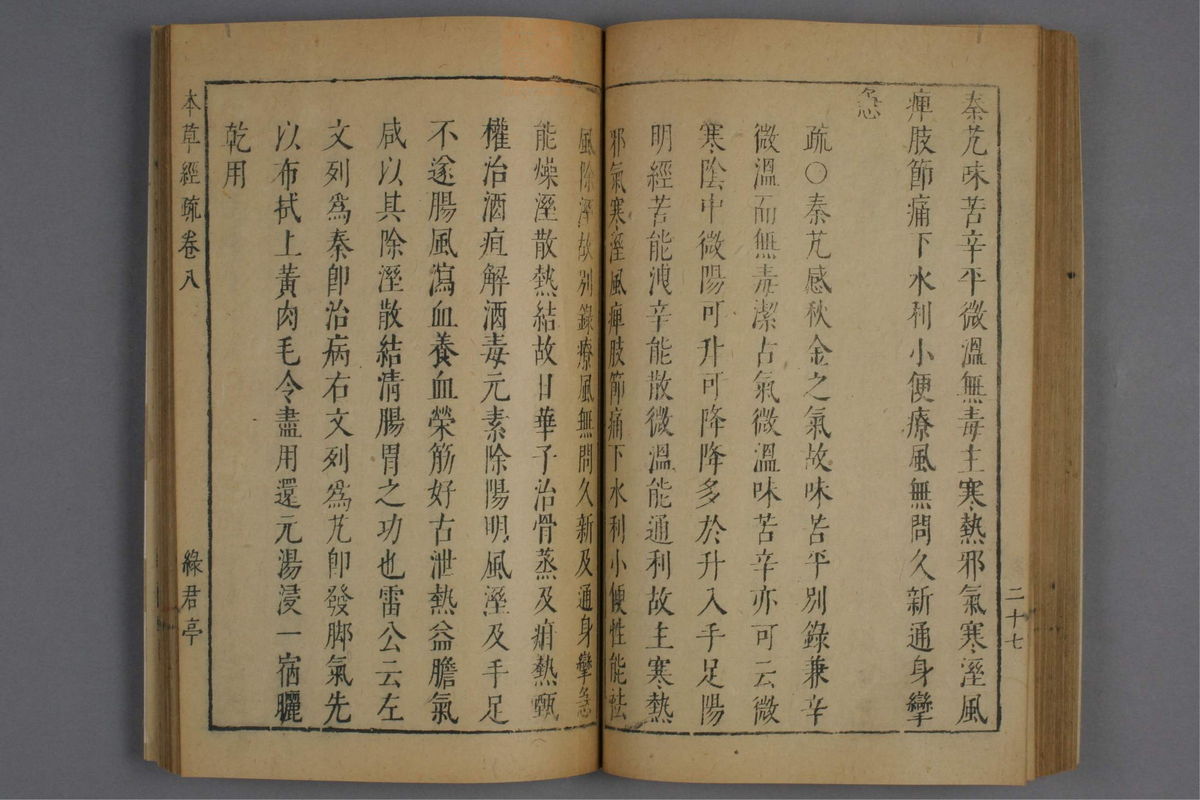 秦艽味苦辛平微溫無毒主寒熱邪氣寒溼風
痺肢節痛下水利小便療風無問久新通身攣
急
疏〇秦艽感秋金之氣故味苦平別錄兼辛
微溫而無毒潔占氣微溫味苦辛亦可云微
寒陰中微陽可升可降降多於升入手足陽
明經苦能洩辛能散微溫能通利故主寒熱
邪氣寒溼風痺肢節痛下水利小便性能祛
風除溼故別錄療風無問久新及通身攣急
能燥溼散熱結故日華子治骨蒸及疳熱甄
權治酒疸解酒毒元素除陽明風溼及手足
不遂腸風瀉血養血榮筋好古泄熱益膽氣
咸以其除溼散結清腸胃之功也雷公云左
文列為秦卽治病右文列為艽卽發脚氣先
以布拭上黃肉毛令盡用還元湯浸一宿曬
乾用
二十七
本草經疏卷八
綠君亭